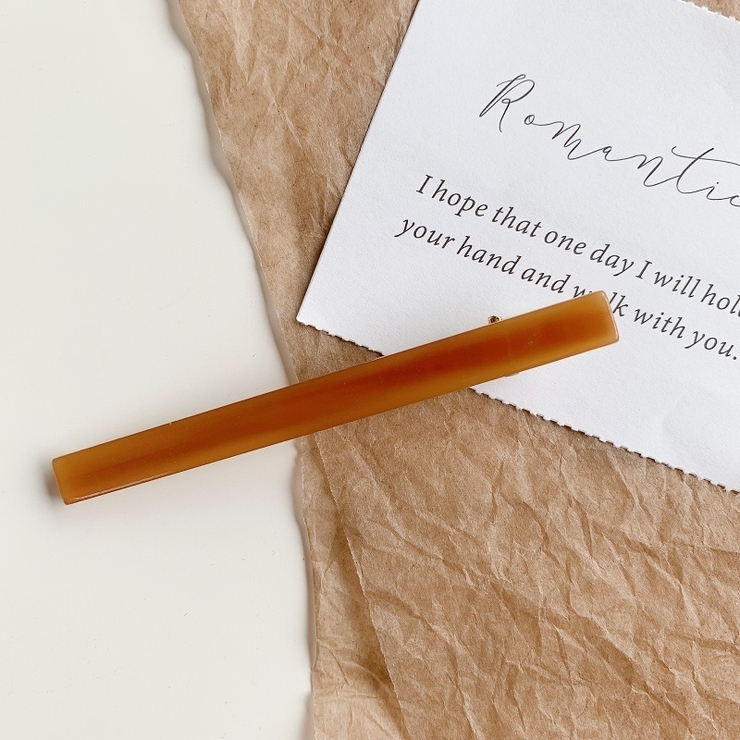 Romantic
I hope that one day I will hold
your hand and walk with you.